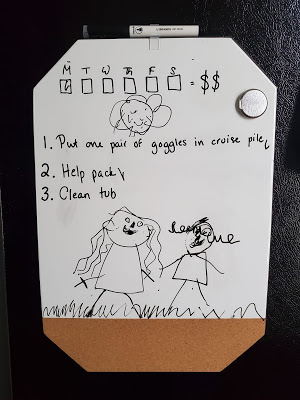 M T W Th F S
= $$
1. Put one pair of goggles in cruise pile
2. Help pack
3. Clean tub